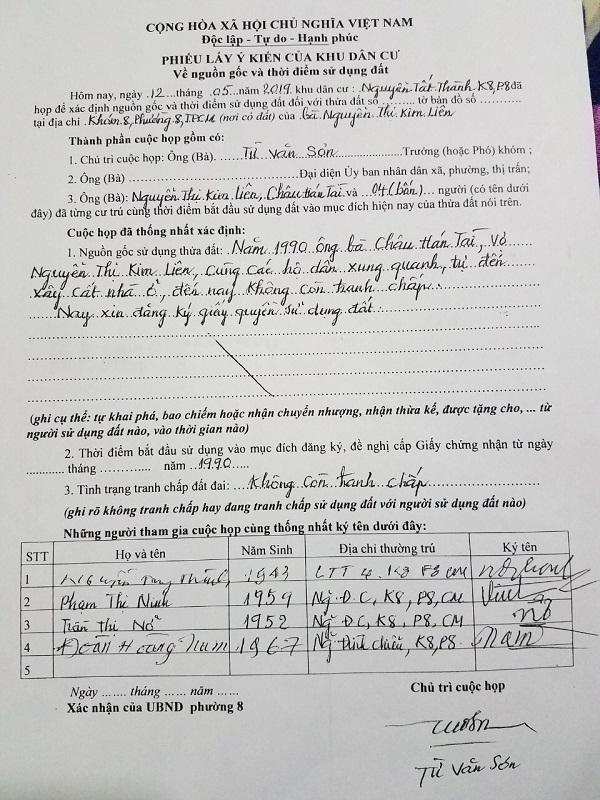 CỘNG HÒA XÃ HỘI CHỦ NGHĨA VIỆT NAM
Độc lập - Tự do - Hạnh phúc
PHIẾU LẤY Ý KIẾN CỦA KHU DÂN CƯ
Về nguồn gốc và thời điểm sử dụng đất
Hôm nay, ngày .12...tháng .05...năm 2019. khu dân cư : Nguyễn Tất Thành K8, P8 đã
họp để xác định nguồn gốc và thời điểm sử dụng đất đối với thửa đất số ......... tờ bản đồ số .........
tại địa chỉ Khóm 8, Phường 8, TPCM (nơi có đất) của bà Nguyễn Thị Kim Liên
Thành phần cuộc họp gồm có:
1. Chủ trì cuộc họp: Ông (Bà) ...... Từ Văn Sơn ......Trưởng (hoặc Phó) khóm ;
2. Ông (Bà) ......Đại diện Ủy ban nhân dân xã, phường, thị trấn;
3. Ông (Bà): Nguyễn Thị Kim Liên, Châu Hán Tài và ..04 (bốn)... người (có tên dưới
đây) đã từng cư trú cùng thời điểm bắt đầu sử dụng đất vào mục đích hiện nay của thửa đất nói trên.
Cuộc họp đã thống nhất xác định:
1. Nguồn gốc sử dụng thửa đất: Năm 1990 ông bà Châu Hán Tài, Vỏ
Nguyễn Thị Kim Liên, cùng các hộ dân xung quanh, tự đến
xây cất nhà ở, đến nay không còn tranh chấp.
Nay xin đăng ký giấy quyền sử dụng đất.
(ghi cụ thể: tự khai phá, bao chiếm hoặc nhận chuyển nhượng, nhận thừa kế, được tặng cho, ... từ
người sử dụng đất nào, vào thời gian nào)
2. Thời điểm bắt đầu sử dụng vào mục đích đăng ký, đề nghị cấp Giấy chứng nhận từ ngày
............ tháng ............ năm ..1990.....
3. Tình trạng tranh chấp đất đai: ....Không còn tranh chấp
(ghi rõ không tranh chấp hay đang tranh chấp sử dụng đất với người sử dụng đất nào)
Những người tham gia cuộc họp cùng thống nhất ký tên dưới đây:
STT Họ và tên Năm Sinh Địa chỉ thường trú Ký tên
1 1943 LTT 4. K8 P8 CM
2 Phạm Thị Ninh 1959 Ng. Đ.C, K8, P8, CM
3 Trần Thị Nở 1952 Ng. Đ.C, K8, P8, CM Nở
4 Đoàn Hoàng Nam 1967 Ng Đình Chiểu, K8, P8. Nam
5
Ngày ....... tháng ...... năm ......
Chủ trì cuộc họp
Xác nhận của UBND phường 8
Từ Văn Sơn